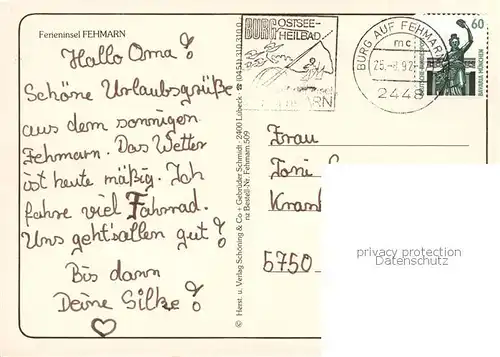 Ferieninsel FEHMARN
Hallo Oma!
Schöne Urlaubsgrüße
aus dem sonnigen
Fehmarn. Das Wetter
ist heute mäßig. Ich
fahre viel Fahrrad.
Uns geht's allen gut!
Bis dann
Deine Silke!
© Herst. u. Verlag Schöning & Co + Gebrüder Schmidt · 2400 Lübeck
nz Bestell-Nr. Fehmarn 509
BURG OSTSEE-
HEILBAD
BURG AUF FEHMARN
mc
2448
60
DEUTSCHE BUNDESPOST
BAVARIA MÜNCHEN
Frau
Toni
5750
privacy protection
Datenschutz